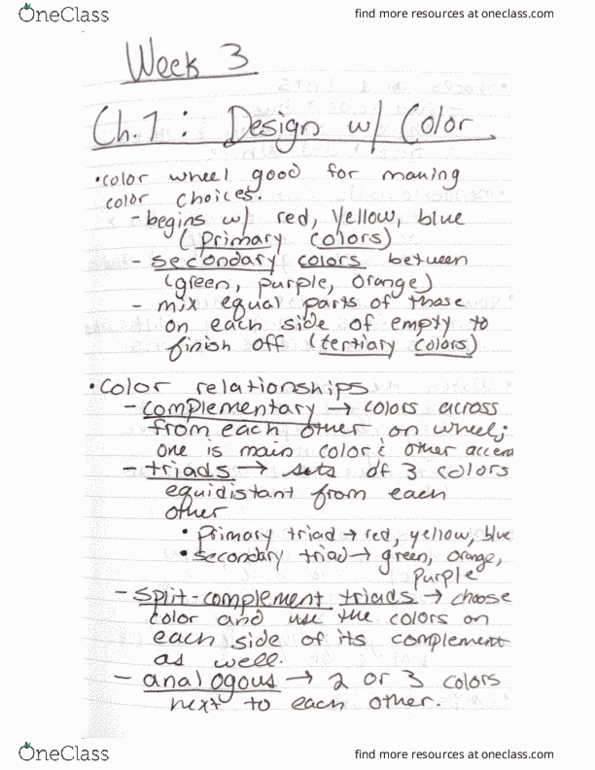 OneClass
find more resources at oneclass.com
Week 3
Ch.7: Design w/ Color
• color wheel good for making
color choices.
- begins w/ red, yellow, blue
(primary colors)
- secondary colors between
(green, purple, orange)
- mix equal parts of those
on each side of empty to
finish off (tertiary colors)
• Color relationships
- complementary → colors across
from each other on wheel;
one is main color & other accent
- triads → sets of 3 colors
equidistant from each
other
• primary triad → red, yellow, blue
• secondary triad → green, orange,
purple
- split-complement triads → choose
color and use the colors on
each side of its complement
as well.
- analogous → 2 or 3 colors
next to each other.
OneClass
find more resources at oneclass.com